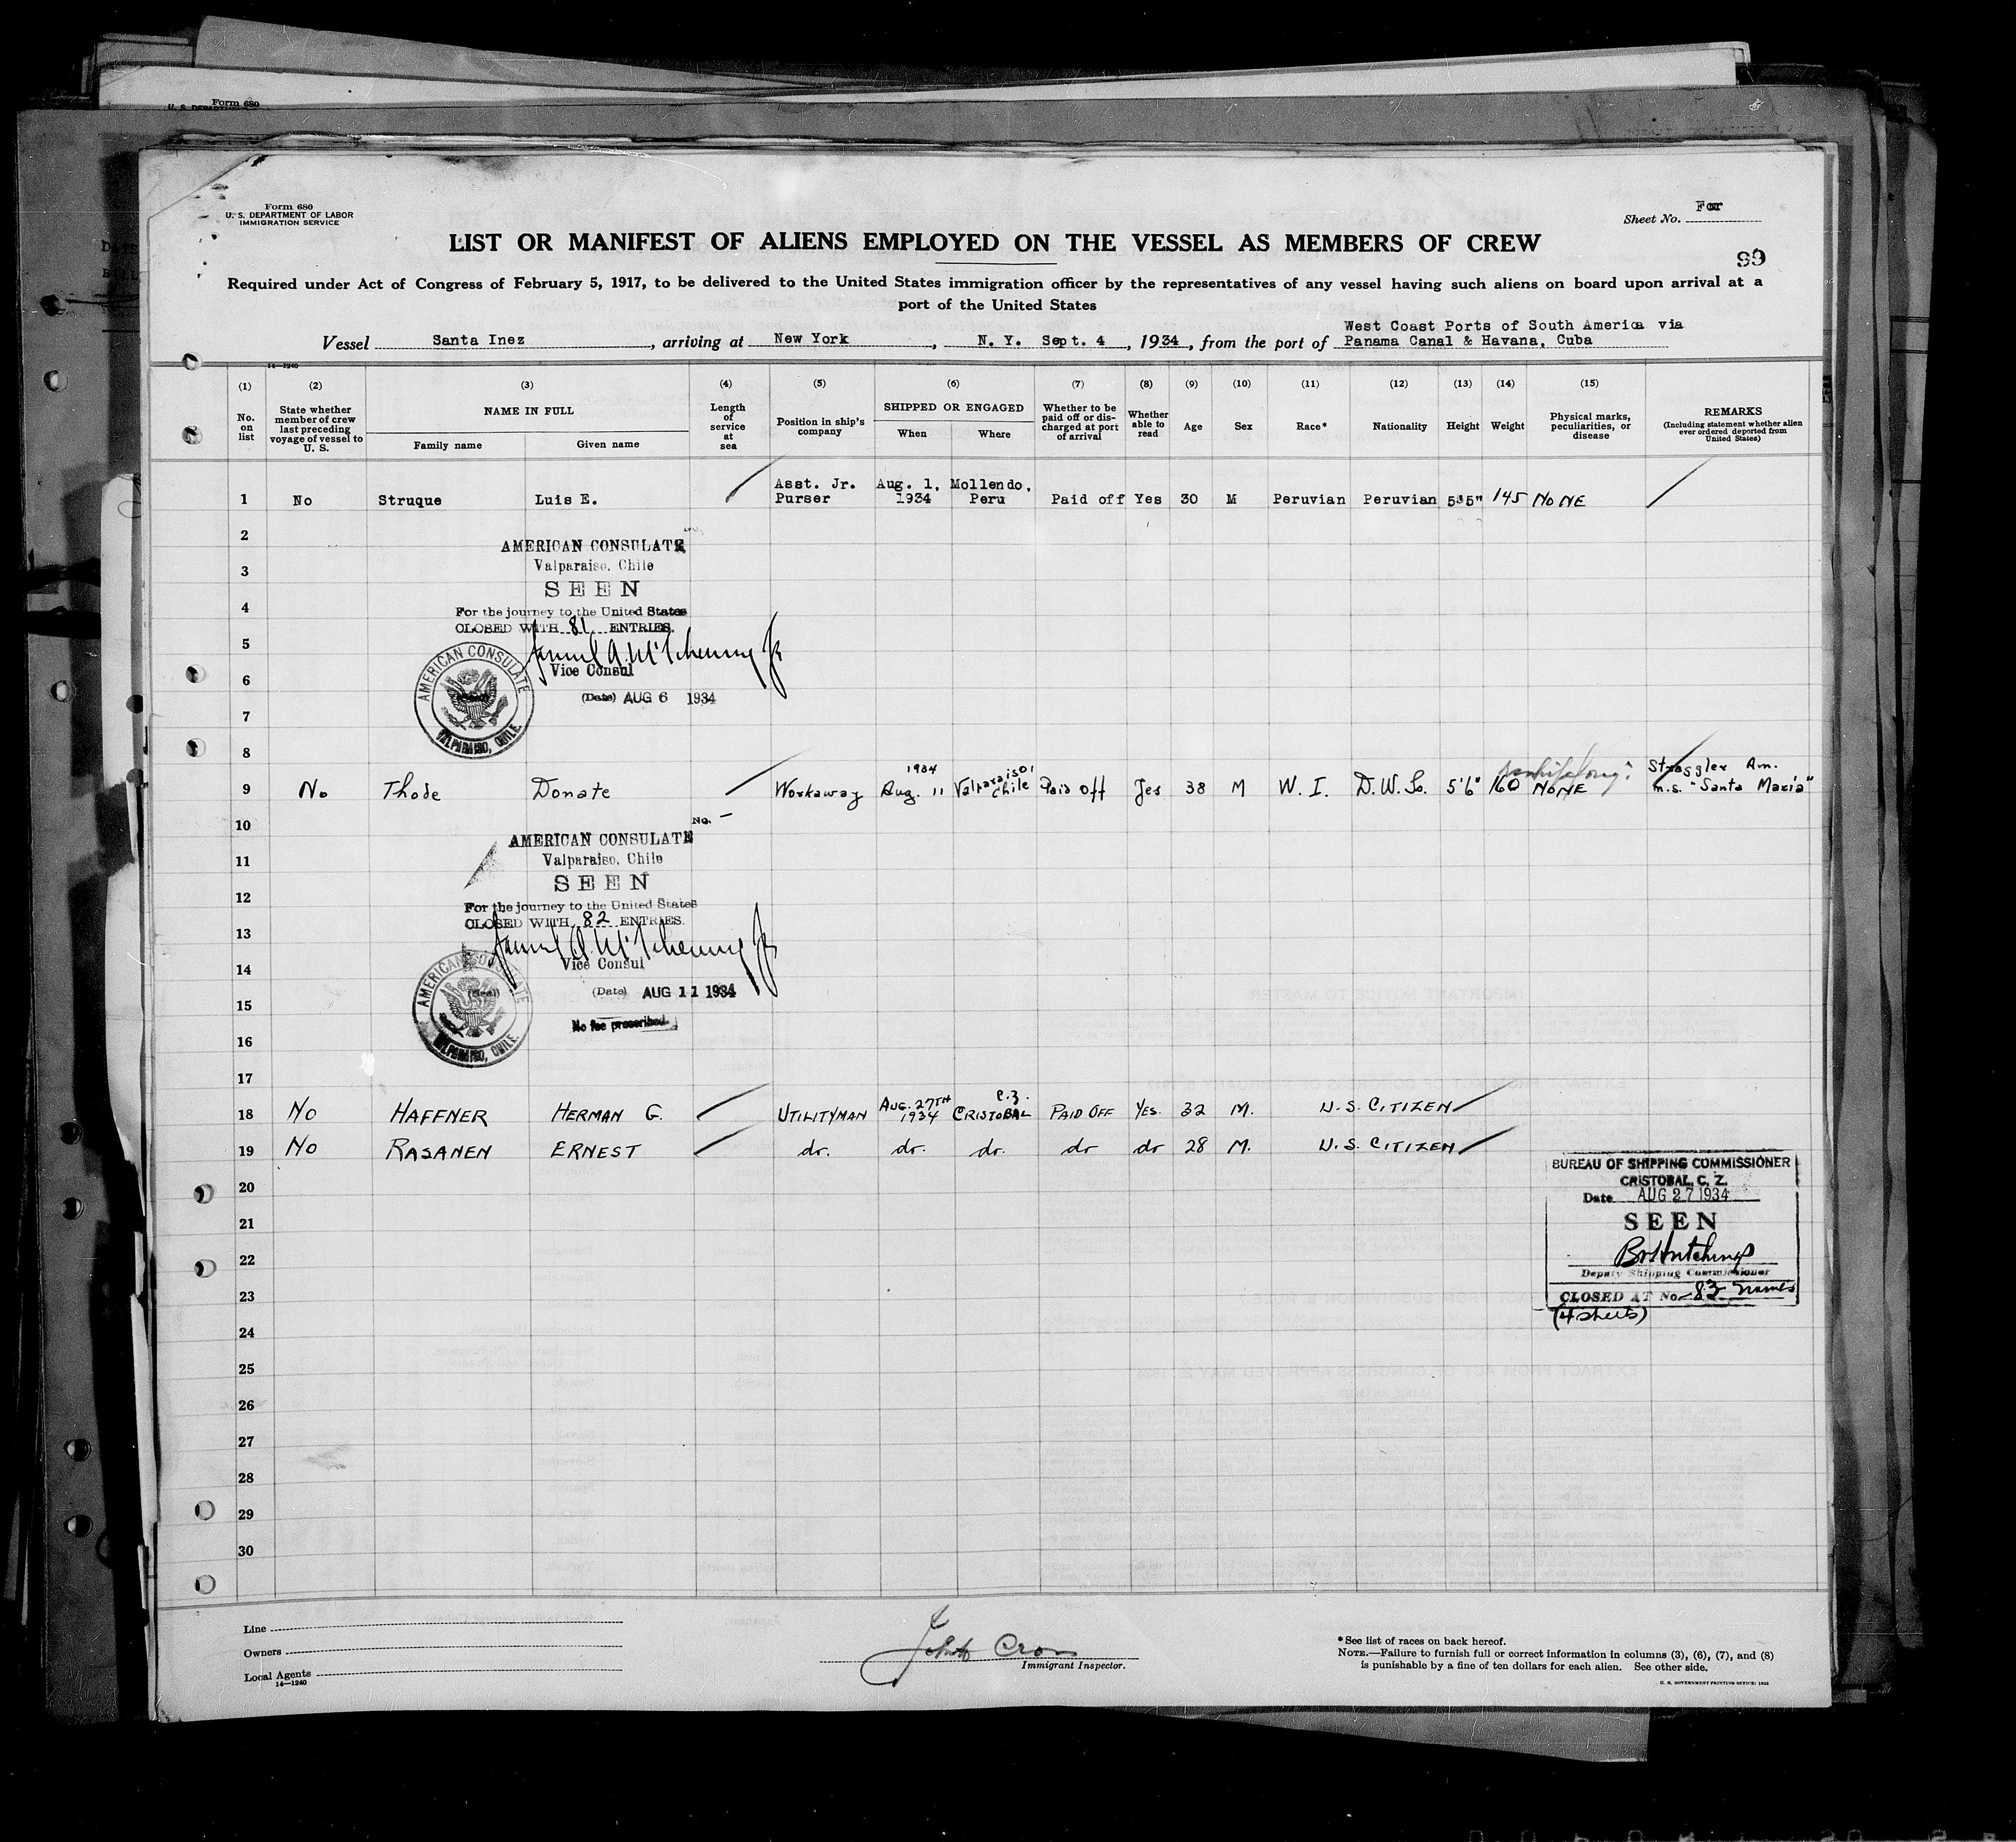 Form 680
U. S. DEPARTMENT OF LABOR
IMMIGRATION SERVICE
Sheet No. Four
99
LIST OR MANIFEST OF ALIENS EMPLOYED ON THE VESSEL AS MEMBERS OF CREW
Required under Act of Congress of February 5, 1917, to be delivered to the United States immigration officer by the representatives of any vessel having such aliens on board upon arrival at a
port of the United States
Vessel Santa Inez, arriving at New York, N. Y. Sept. 4, 1934, from the port of West Coast Ports of South America via
Panama Canal & Havana, Cuba
14—1240
(1) (2) (3) (4) (5) (6) (7) (8) (9) (10) (11) (12) (13) (14) (15)
No. on list
State whether member of crew last preceding voyage of vessel to U. S.
NAME IN FULL
Family name
Given name
Length of service at sea
Position in ship's company
SHIPPED OR ENGAGED
When
Where
Whether to be paid off or discharged at port of arrival
Whether able to read
Age
Sex
Race*
Nationality
Height
Weight
Physical marks, peculiarities, or disease
REMARKS
(Including statement whether alien ever ordered deported from United States)
1 No Struque Luis E. Asst. Jr. Purser Aug. 1, 1934 Mollendo, Peru Paid off Yes 30 M Peruvian Peruvian 5'5" 145 NONE
2
AMERICAN CONSULATE
3
Valparaiso, Chile
SEEN
4
For the journey to the United States
CLOSED WITH 81 ENTRIES.
5
Vice Consul
6
(Date) AUG 6 1934
AMERICAN CONSULATE
(Seal)
VALPARAISO, CHILE.
7
8
9 No Thode Donate Workaway 1934 Aug. 11 Valparaiso, Chile Paid Off Yes 38 M W. I. D.W.G. 5'6" 160 NONE Straggler Am. m.s. "Santa Maria"
10
No. —
AMERICAN CONSULATE
11
Valparaiso, Chile
SEEN
12
For the journey to the United States
CLOSED WITH 82 ENTRIES.
13
Vice Consul
14
AMERICAN CONSULATE
(Seal)
VALPARAISO, CHILE.
(Date) AUG 11 1934
15
No fee prescribed.
16
17
18 No HAFFNER HERMAN G. UTILITYMAN AUG. 27TH 1934 C.Z. CRISTOBAL PAID OFF YES. 32 M. U.S. CITIZEN
19 No RASANEN ERNEST do. do. do. do do 28 M. U.S. CITIZEN
BUREAU OF SHIPPING COMMISSIONER
CRISTOBAL, C. Z.
Date AUG 27 1934
SEEN
Deputy Shipping Commissioner
CLOSED AT No. 83 names
(4 sheets)
20
21
22
23
24
25
26
27
28
29
30
Line
Owners
Local Agents
14—1240
Immigrant Inspector.
*See list of races on back hereof.
NOTE.—Failure to furnish full or correct information in columns (3), (6), (7), and (8)
is punishable by a fine of ten dollars for each alien. See other side.